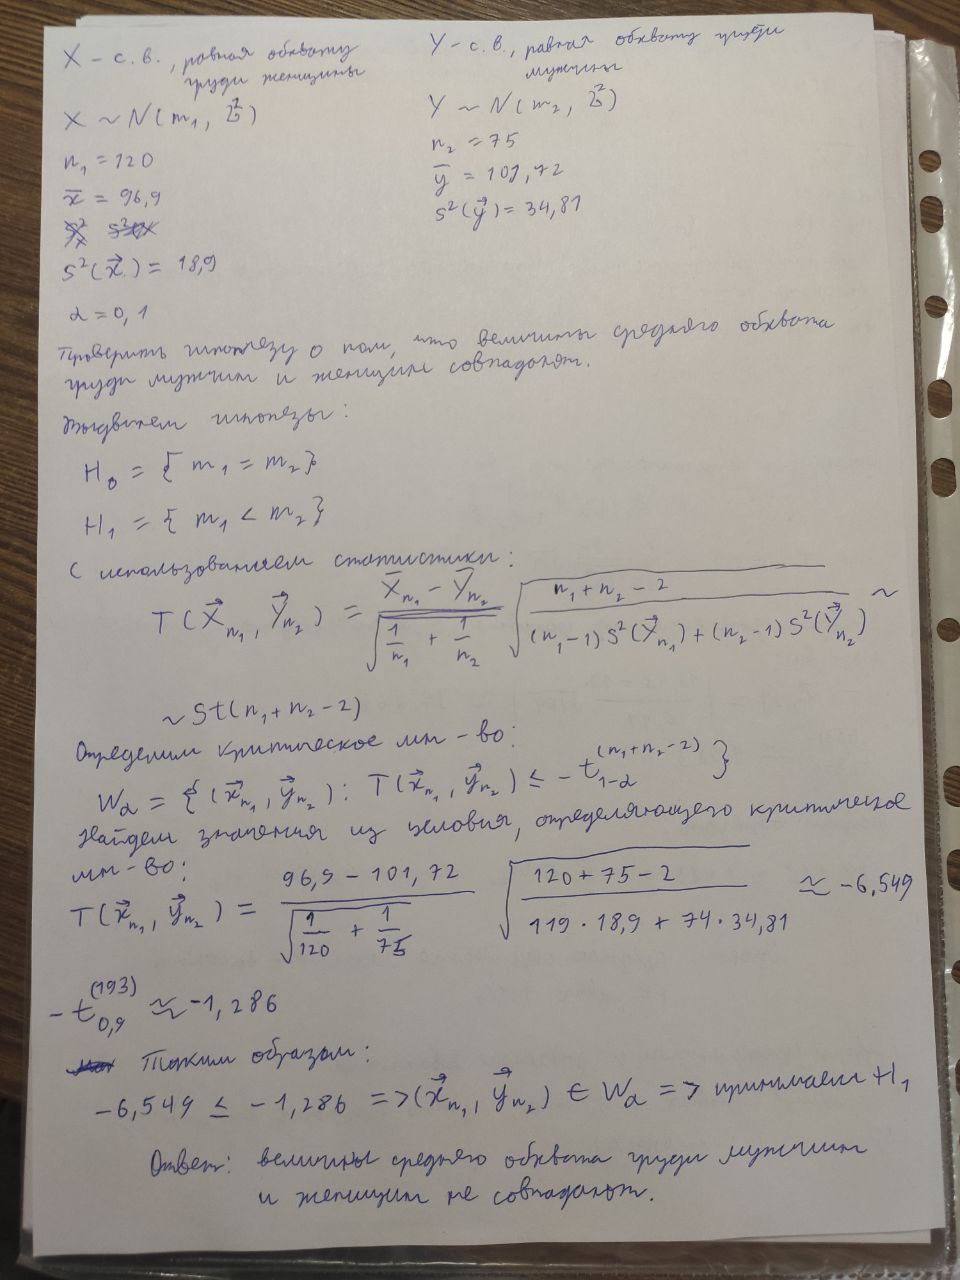 X – с.в., равная обхвату
груди женщины
X ~ N(m₁, σ²)
n₁ = 120
x̄ = 96,9
S²(x⃗) = 18,9
α = 0,1
Y – с.в., равная обхвату груди
мужчины
Y ~ N(m₂, σ²)
n₂ = 75
ȳ = 101,72
S²(y⃗) = 34,81
Проверить гипотезу о том, что величины среднего обхвата
груди мужчин и женщин совпадают.
Выдвинем гипотезы:
H₀ = { m₁ = m₂ }
H₁ = { m₁ < m₂ }
С использованием статистики:
T(X⃗n₁, Y⃗n₂) = (X̄n₁ – Ȳn₂) / √(1/n₁ + 1/n₂) √((n₁ + n₂ – 2) / ((n₁–1) S²(Y⃗n₁) + (n₂–1) S²(Y⃗n₂))) ~
~ St(n₁ + n₂ – 2)
Определим критическое мн-во:
Wα = { (x⃗n₁, y⃗n₂) : T(x⃗n₁, y⃗n₂) ≤ – t₁₋α^(n₁+n₂–2) }
Найдем значения из условия, определяющего критическое
мн-во:
T(x⃗n₁, y⃗n₂) = (96,9 – 101,72) / √(1/120 + 1/75) √((120 + 75 – 2) / (119 · 18,9 + 74 · 34,81)) ≈ –6,549
– t₀,₉^(193) ≈ –1,286
Таким образом:
–6,549 ≤ –1,286 => (x⃗n₁, y⃗n₂) ∈ Wα => принимаем H₁
Ответ: величины среднего обхвата груди мужчин
и женщин не совпадают.